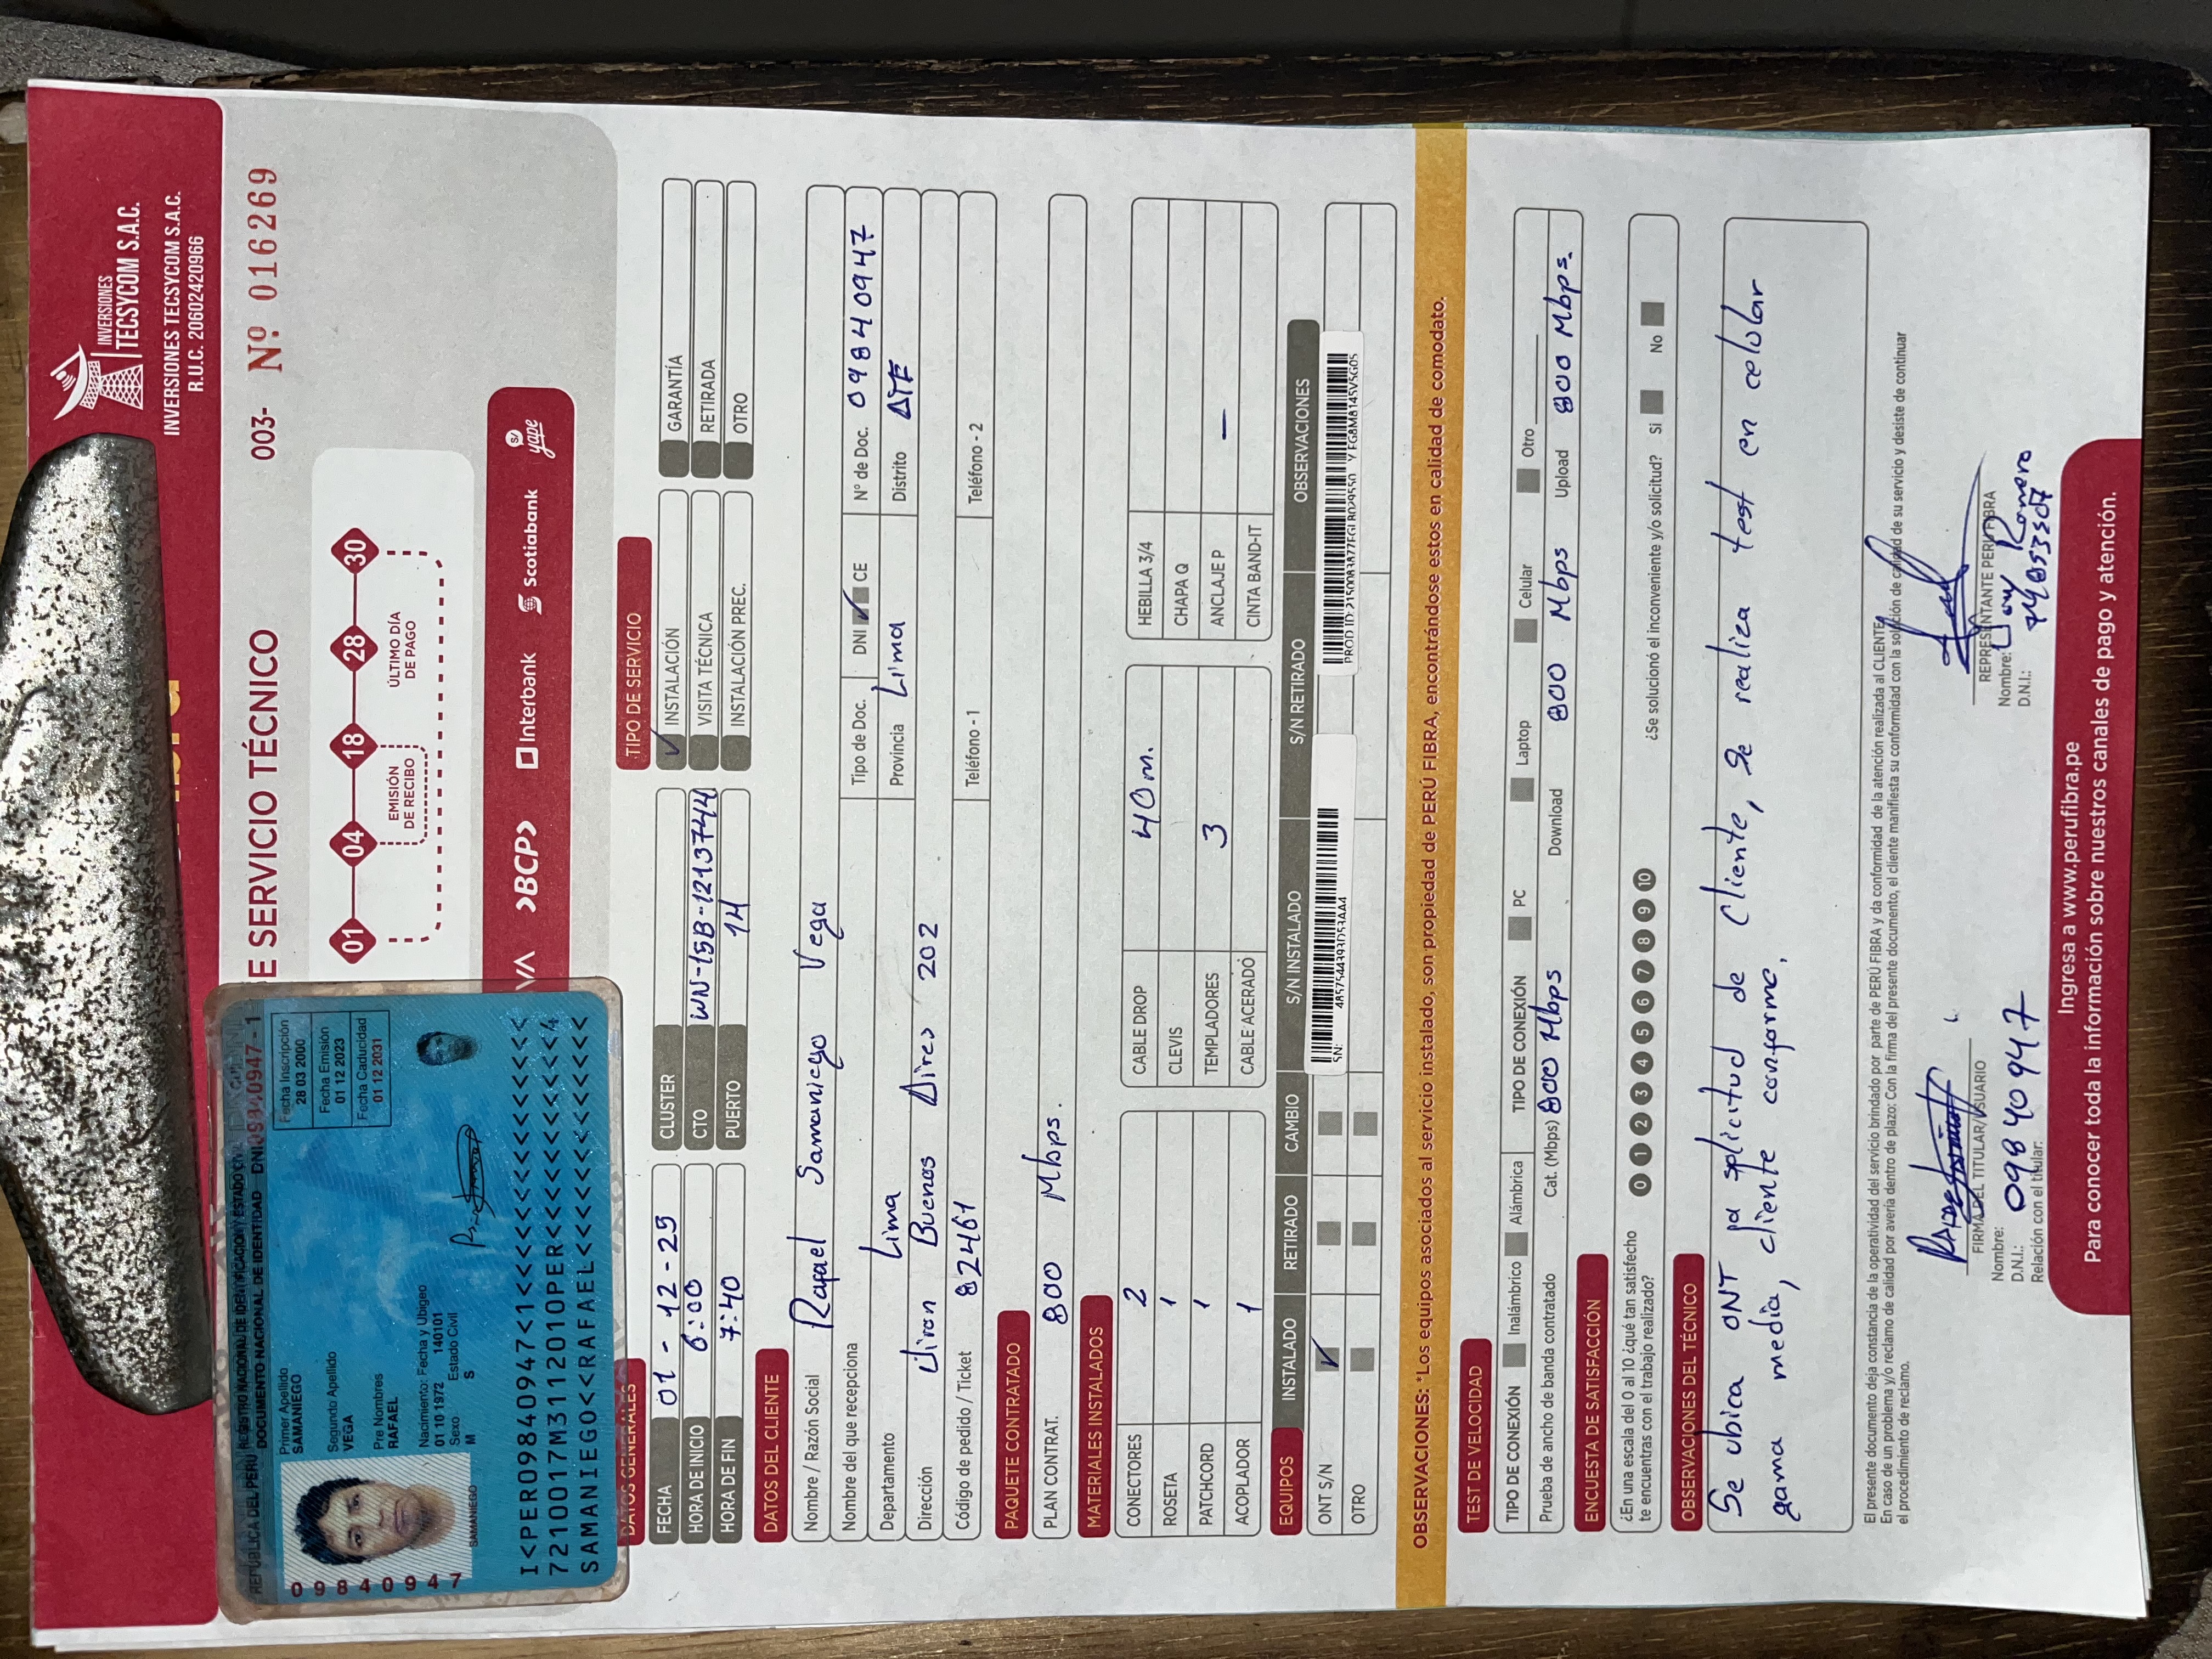 INVERSIONES
TECSYCOM S.A.C.
INVERSIONES TECSYCOM S.A.C.
R.U.C. 20602420966
E SERVICIO TÉCNICO 003- Nº 016269
01 04 18 28 30
EMISIÓN DE RECIBO
ÚLTIMO DÍA DE PAGO
>BCP> Interbank Scotiabank S/ yape
REPÚBLICA DEL PERÚ REGISTRO NACIONAL DE IDENTIFICACIÓN Y ESTADO CIVIL
DOCUMENTO NACIONAL DE IDENTIDAD DNI 09840947 - 1
Primer Apellido
SAMANIEGO
Segundo Apellido
VEGA
Pre Nombres
RAFAEL
Nacimiento: Fecha y Ubigeo
01 10 1972 140101
Sexo Estado Civil
M S
Fecha Inscripción
28 03 2000
Fecha Emisión
01 12 2023
Fecha Caducidad
01 12 2031
09840947
SAMANIEGO
I<PER09840947<1<<<<<<<<<<<<<<<
7210017M3112010PER<<<<<<<<<<<4
SAMANIEGO<<RAFAEL<<<<<<<<<<<<<
DATOS GENERALES
TIPO DE SERVICIO
FECHA 01 - 12 - 25 CLUSTER INSTALACIÓN GARANTÍA
HORA DE INICIO 6:00 CTO WN-15B-1213744 VISITA TÉCNICA RETIRADA
HORA DE FIN 7:40 PUERTO 14 INSTALACIÓN PREC. OTRO
DATOS DEL CLIENTE
Nombre / Razón Social Rafael Samaniego Vega
Nombre del que recepciona Tipo de Doc. DNI CE N° de Doc. 09840947
Departamento Lima Provincia Lima Distrito ATE
Dirección Jiron Buenos Aires 202
Código de pedido / Ticket 82461 Teléfono - 1 Teléfono - 2
PAQUETE CONTRATADO
PLAN CONTRAT. 800 Mbps.
MATERIALES INSTALADOS
CONECTORES 2 CABLE DROP 40 m. HEBILLA 3/4
ROSETA 1 CLEVIS CHAPA Q
PATCHCORD 1 TEMPLADORES 3 ANCLAJE P —
ACOPLADOR 1 CABLE ACERADO CINTA BAND-IT
EQUIPOS INSTALADO RETIRADO CAMBIO S/N INSTALADO S/N RETIRADO OBSERVACIONES
ONT S/N SN:
OTRO
OBSERVACIONES: *Los equipos asociados al servicio instalado, son propiedad de PERÚ FIBRA, encontrándose estos en calidad de comodato.
TEST DE VELOCIDAD
TIPO DE CONEXIÓN Inalámbrico Alámbrica TIPO DE CONEXIÓN PC Laptop Celular Otro
Prueba de ancho de banda contratado Cat. (Mbps) 800 Mbps Download 800 Mbps Upload 800 Mbps.
ENCUESTA DE SATISFACCIÓN
¿En una escala del 0 al 10 ¿qué tan satisfecho
te encuentras con el trabajo realizado? 0 1 2 3 4 5 6 7 8 9 10 ¿Se solucionó el inconveniente y/o solicitud? Si No
OBSERVACIONES DEL TÉCNICO
Se ubica ONT pa splicitud de cliente, Se realiza test en celular
gama media, cliente conforme.
El presente documento deja constancia de la operatividad del servicio brindado por parte de PERÚ FIBRA y da conformidad de la atención realizada al CLIENTE.
En caso de un problema y/o reclamo de calidad por avería dentro de plazo: Con la firma del presente documento, el cliente manifiesta su conformidad con la solución de calidad de su servicio y desiste de continuar
el procedimiento de reclamo.
FIRMA DEL TITULAR/USUARIO
Nombre:
D.N.I.: 09840947
Relación con el titular:
REPRESENTANTE PERÚ FIBRA
Nombre: Romero
D.N.I.:
Ingresa a www.perufibra.pe
Para conocer toda la información sobre nuestros canales de pago y atención.